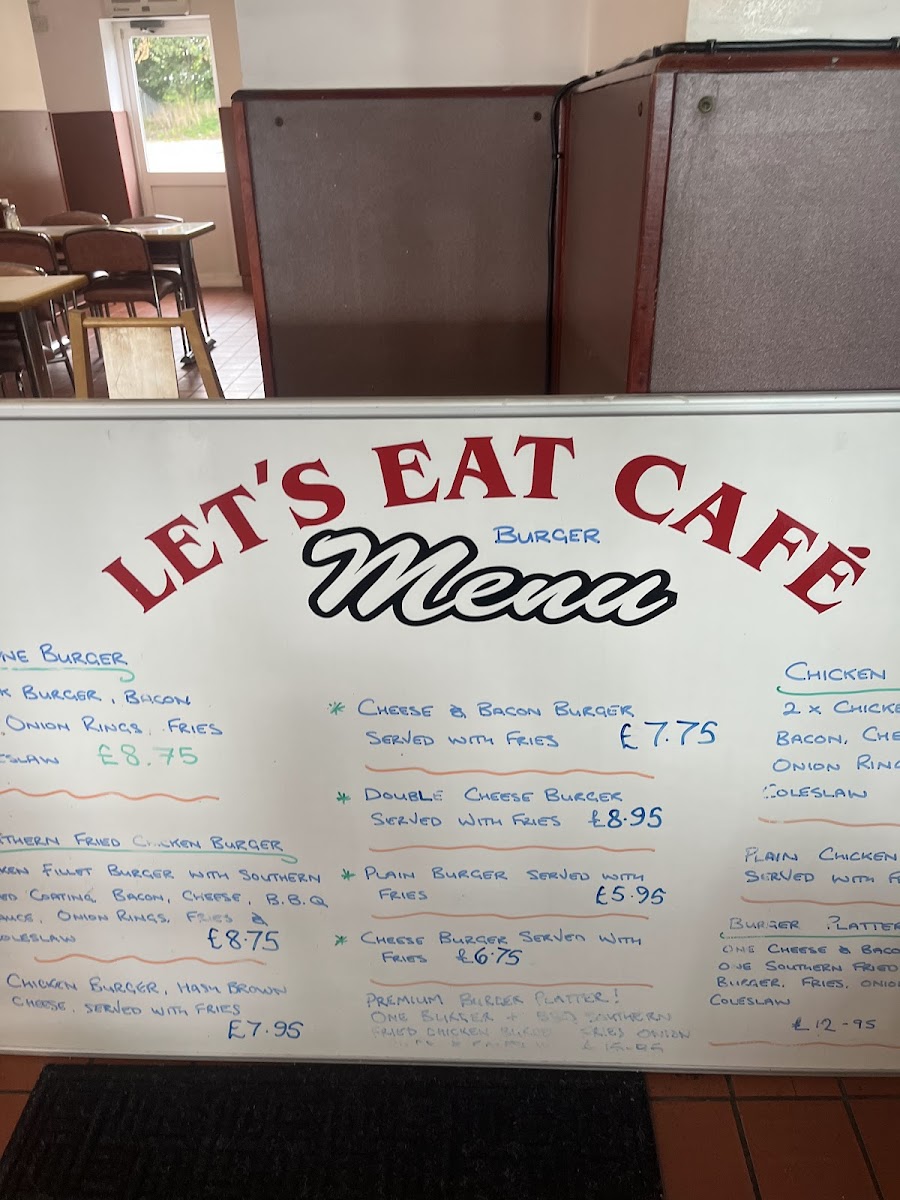 LET'S EAT CAFÉ
BURGER
Menu
NE BURGER
K BURGER, BACON
ONION RINGS, FRIES
ESLAW £8.75
THERN FRIED CHICKEN BURGER
KEN FILLET BURGER WITH SOUTHERN
ED COATING, BACON, CHEESE, B.B.Q
AUCE, ONION RINGS, FRIES &
OLESLAW £8.75
CHICKEN BURGER, HASH BROWN
CHEESE, SERVED WITH FRIES
£7.95
* CHEESE & BACON BURGER
SERVED WITH FRIES £7.75
* DOUBLE CHEESE BURGER
SERVED WITH FRIES £8.95
* PLAIN BURGER SERVED WITH
FRIES £5.95
* CHEESE BURGER SERVED WITH
FRIES £6.75
PREMIUM BURGER PLATTER!
ONE BURGER + BBQ SOUTHERN
FRIED CHICKEN BURGE FRIES ONION
CHICKEN
2 X CHICKE
BACON, CHE
ONION RING
COLESLAW
PLAIN CHICKEN
SERVED WITH F
BURGER PLATTER
ONE CHEESE & BACO
ONE SOUTHERN FRIED
BURGER, FRIES, ONIO
COLESLAW
£12-95